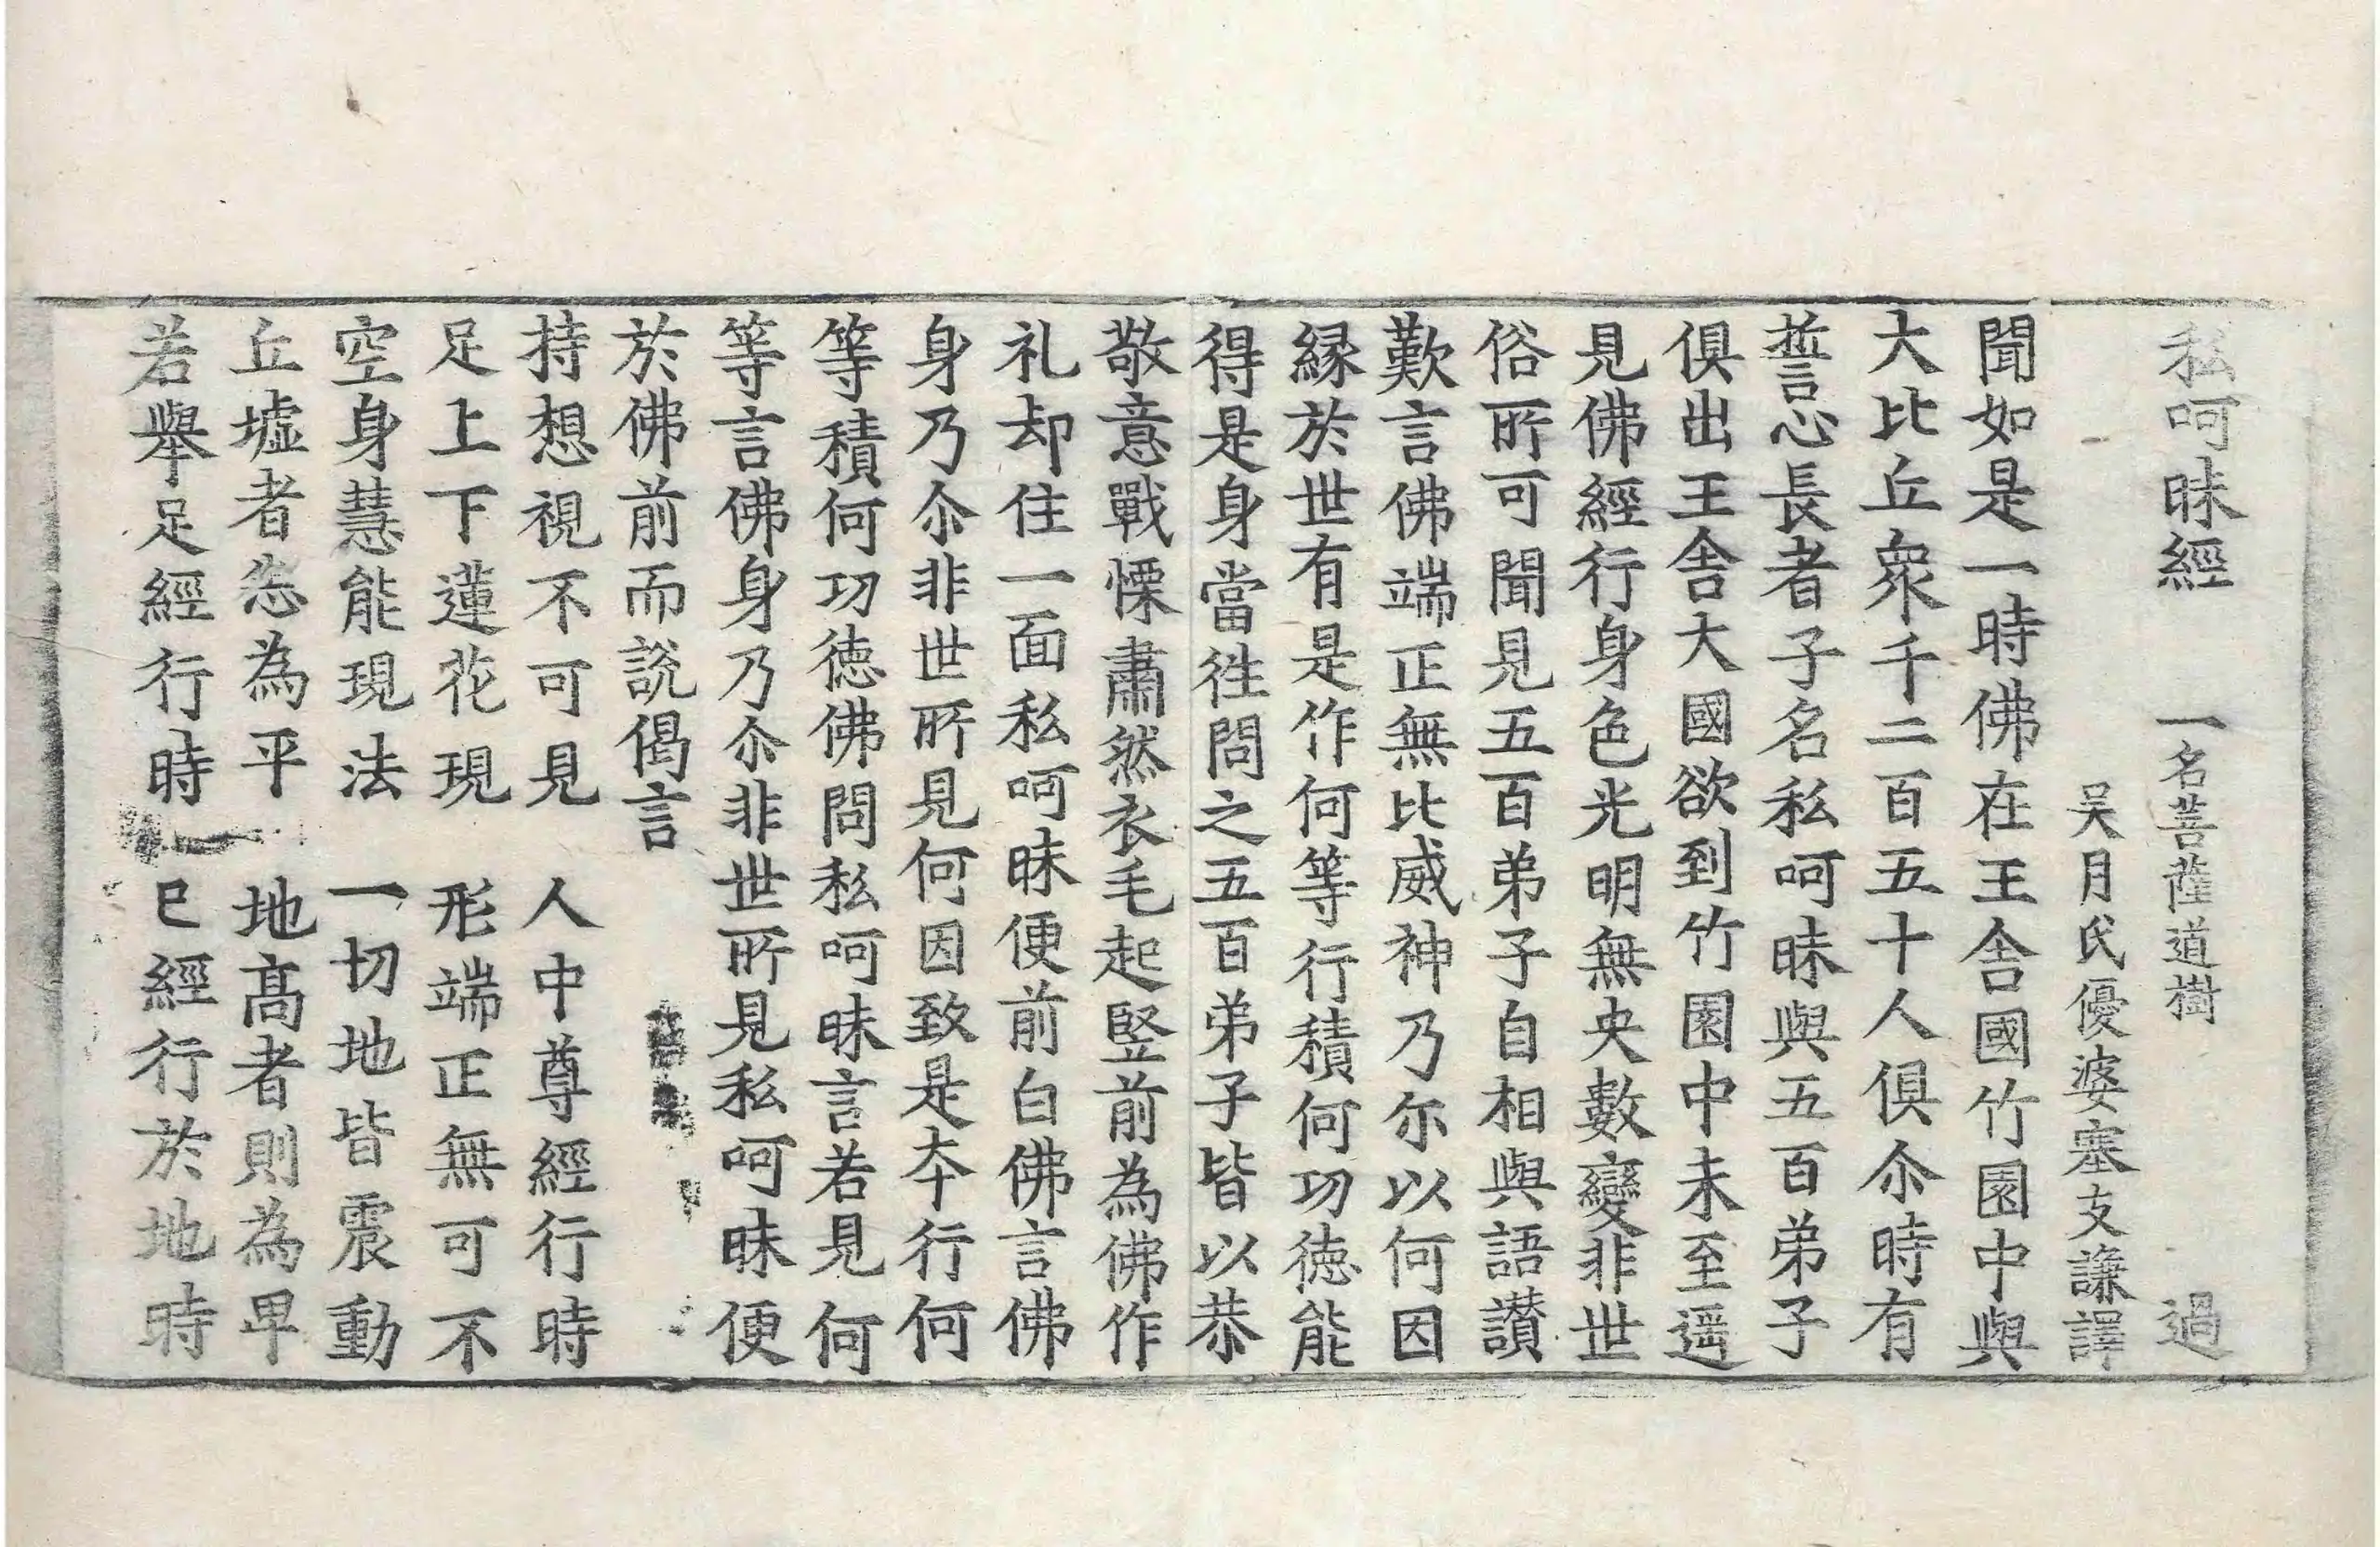 私呵昧經 一名菩薩道樹 過
吴月氏優婆塞支謙譯
聞如是一時佛在王舍國竹園中與
大比丘衆千二百五十人俱尒時有
誓心長者子名私呵昧與五百弟子
俱出王舍大國欲到竹園中未至遥
見佛經行身色光明無央數變非世
俗所可聞見五百弟子自相與語讃
歎言佛端正無比威神乃尔以何因
縁於世有是作何等行積何功徳能
得是身當徃問之五百弟子皆以恭
敬意戰慄肅然衣毛起竪前為佛作
礼却住一面私呵昧便前白佛言佛
身乃尒非世所見何因致是夲行何
等積何功徳佛問私呵昧言若見何
等言佛身乃尒非世所見私呵昧便
於佛前而説偈言
持想視不可見 人中尊經行時
足上下蓮花現 形端正無可不
空身慧能現法 一切地皆震動
丘墟者悉為平 地髙者則為卑
若舉足經行時 已經行於地時